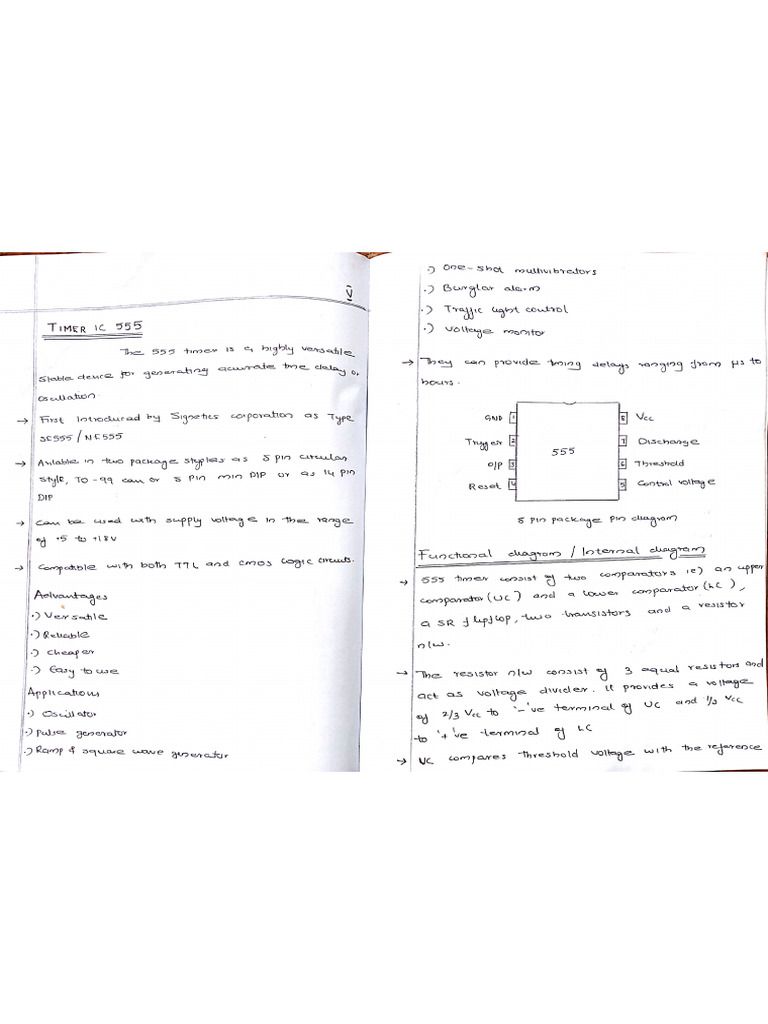 V
TIMER IC 555
The 555 timer is a highly versatile
stable device for generating accurate time delay or
oscillation.
→ First Introduced by Signetics corporation as Type
SE555 / NE555
→ Avilable in two package styples as 8 pin circular
style, TO-99 can or 8 pin mini DIP or as 14 pin
DIP
→ can be used with supply voltage in the range
of +5 to +18V
→ Compatible with both TTL and CMOS Logic circuits.
Advantages
·) Versatile
·) Reliable
·) cheaper
·) Easy to use
Applications
·) Oscillator
·) Pulse generator
·) Ramp & square wave generator
·) One-shot multivibrators
·) Burglar alarm
·) Traffic light control
·) Voltage monitor
→ They can provide timing delays ranging from μs to
hours.
GND 1 8 Vcc
Trigger 2 7 Discharge
555
O/P 3 6 Threshold
Reset 4 5 Control voltage
8 pin package pin diagram
Functional diagram / Internal diagram
→ 555 timer consist of two comparators ie) an upper
comparator (UC) and a lower comparator (LC),
a SR flipflop, two transistors and a resistor
n/w.
→ The resistor n/w consist of 3 equal resistors and
act as voltage divider. It provides a voltage
of 2/3 Vcc to '-'ve terminal of UC and 1/3 Vcc
to '+'ve terminal of LC
→ UC compares threshold voltage with the reference